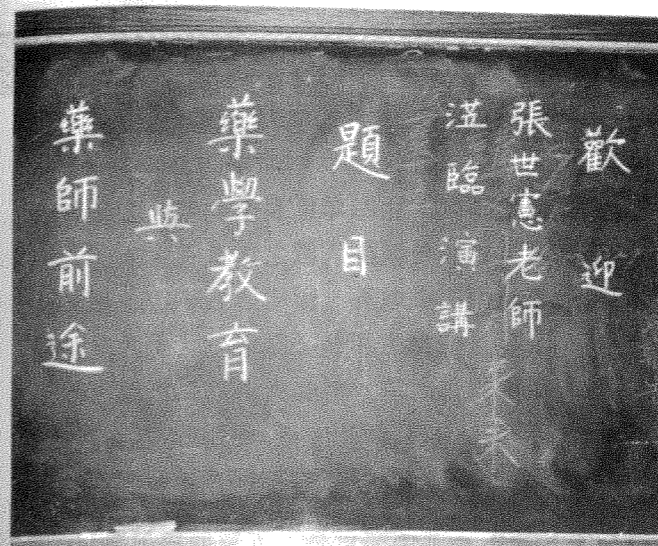 歡迎
張世憲老師
蒞臨演講
題目
藥學教育
與
藥師前途